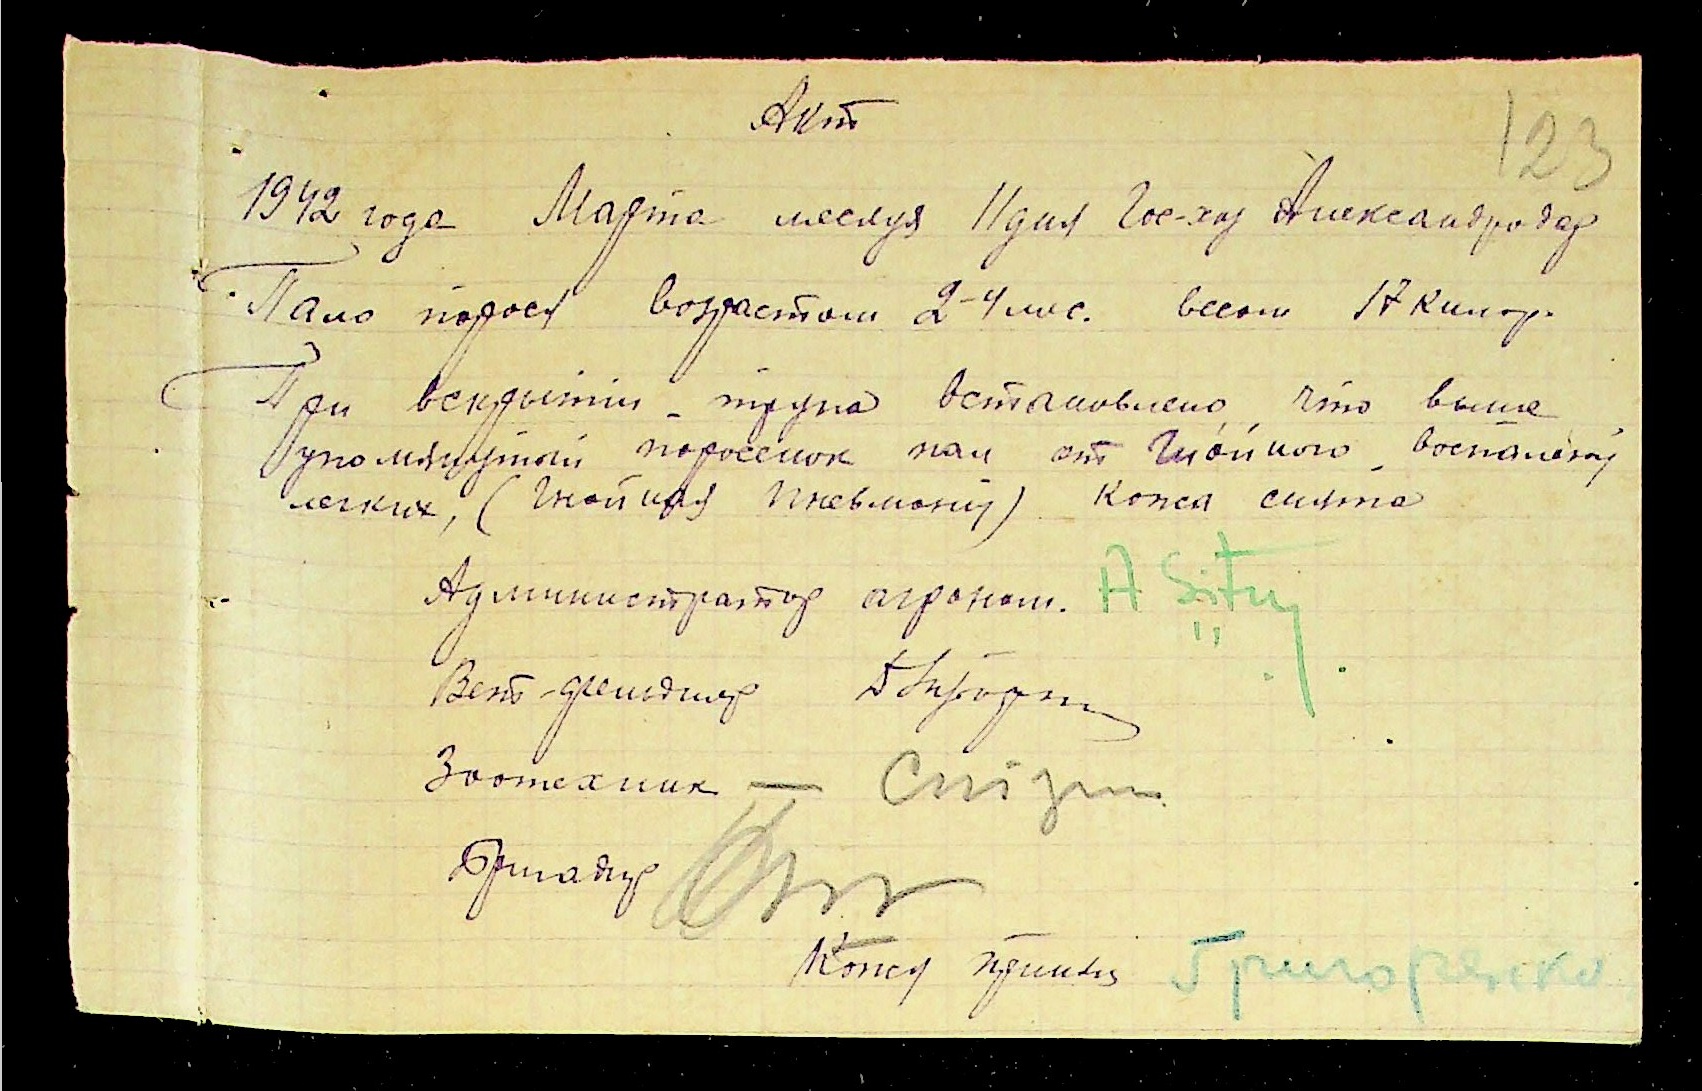 123
Акт
1942 года Марта месяця 11 дня Гос-хоз Александродар
Пало порося возрастом 2-4 мес. весом 17 килогр.
При вскрытии трупа встановлено что выше
упомянутый поросенок пал от Гнойного воспаления
легких, (Гнойная пневмония) кожа снята
Администратор агроном. А
Вет-фельдшер
Зоотехник —
Бригадир
Кожу принял Григоренко